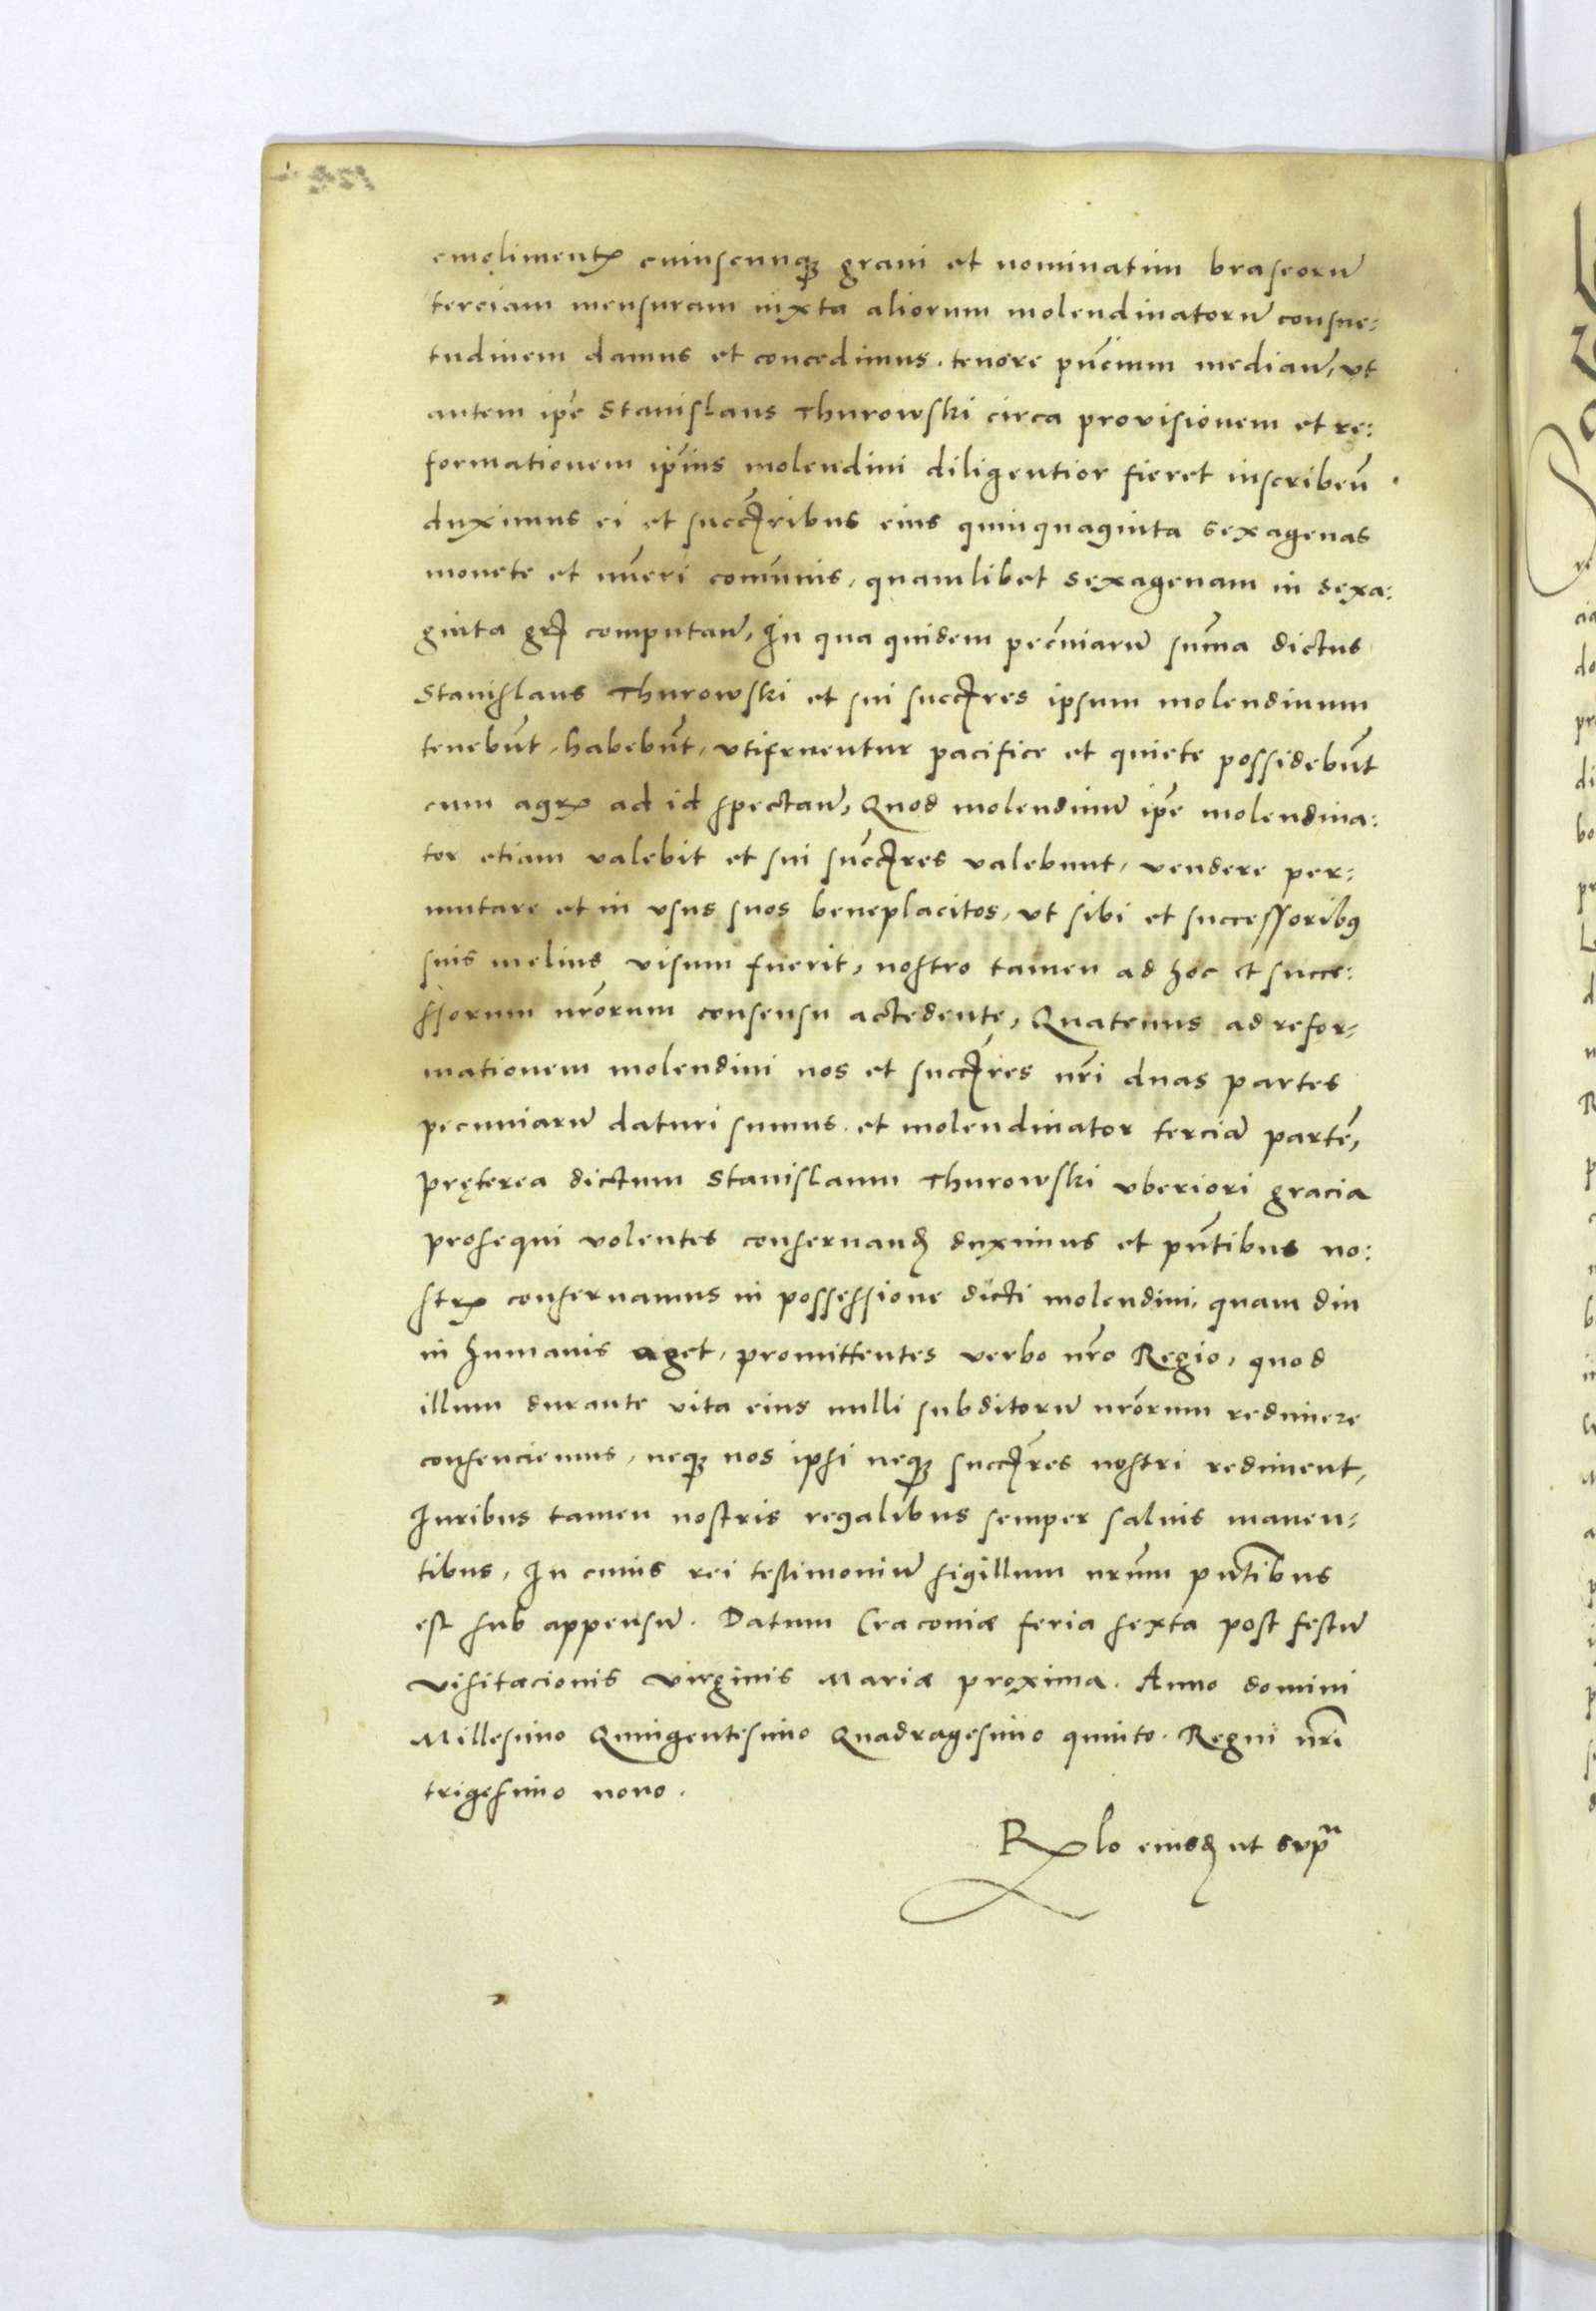 emolimentꝝ cuiuscunqꝫ grani et nominatim braseorū
terciam mensuram iuxta aliorum molendinatorū consue:
tudinem damus et concedimus. tenore pn̄cium mediañ, vt
autem ip̄e Stanislaus Thurowski circa provisionem et re:
formationem ip̄ius molendini diligentior fieret inscribeñ
duximus ei et succꝭribus eius quinquaginta sexagenas
monete et nūeri com̄unis, quamlibet sexagenam in sexa:
ginta grꝭ computañ, In qua quidem pecuniarū sum̄a dictus
Stanislaus Thurowski et sui succꝭres ipsum molendinum
tenebūt, habebūt, vtifruentur pacifice et quiete possidebūt
cum agrꝝ ad id spectañ, Quod molendinū ip̄e molendina:
tor etiam valebit et sui succꝭres valebunt, vendere per:
mutare et in vsus suos beneplacitos, vt sibi et successoribꝰ
suis melius visum fuerit, nostro tamen ad hoc et succe:
ssorum nr̄orum consensu accedente, Quatenus ad refor-
mationem molendini nos et succꝭres nr̄i duas partes
pecuniarū daturi sumus. et molendinator terciā partē,
pręterea dictum Stanislaum Thurowski vberiori gracia
prosequi volentes conservanđ duximus et pn̄tibus no:
strꝝ conservamus in possessione dicti molendini, quam diu
in humanis aget, promittentes verbo nr̄o Regio, quod
illum durante vita eius nulli subditorū nr̄orum redimere
consenciemus, neqꝫ nos ipsi neqꝫ succꝭres nostri rediment,
Iuribus tamen nostris regalibus semper salvis manen-
tibus, In cuius rei testimoniū sigillum nr̄um pn̄tibus
est sub appensū. Datum Cracoviæ feria sexta post festū
visitacionis virginis Mariæ proxima. Anno domini
Millesimo Quingentesimo Quadragesimo quinto. Regni nr̄i
trigesimo nono.
Rꝝlo eiusđ ut supᵃ